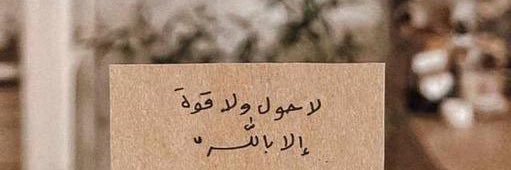 لا حول ولا قوة
إلا بالله